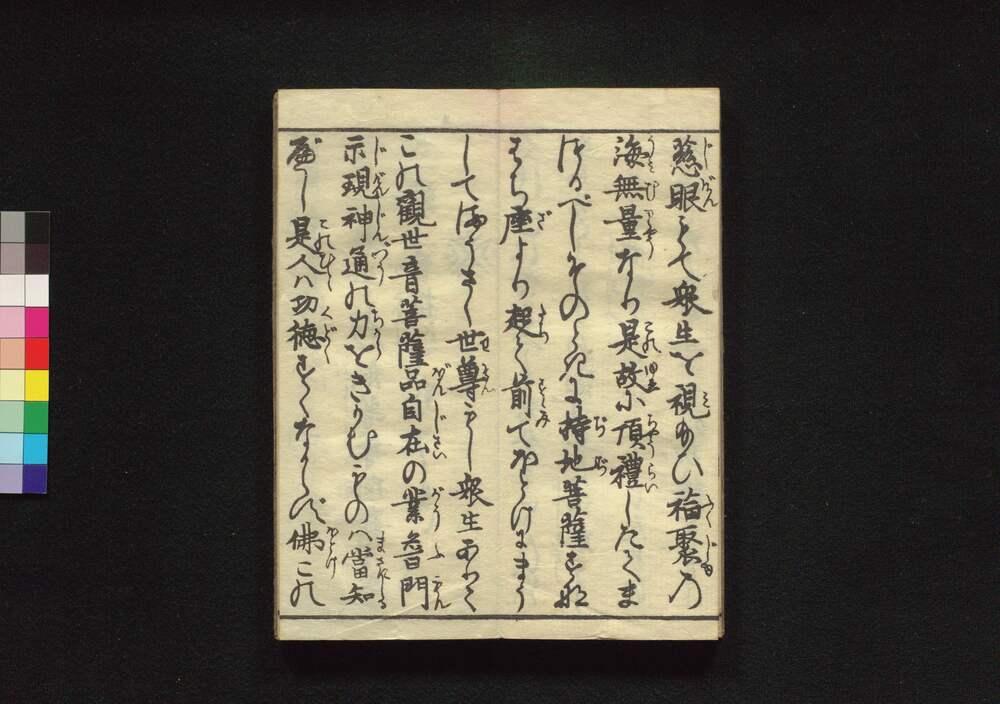 慈眼もて衆生を視給ひ福聚の
海無量なり是故に頂禮したてま
つるべしそのときに持地菩薩すな
はち座より起て前てほとけにまう
してまうさく世尊もし衆生ありて
この觀世音菩薩品自在の業普門
示現神通の力をきかむものハ當知
べし是人ハ功徳すくなからず佛この